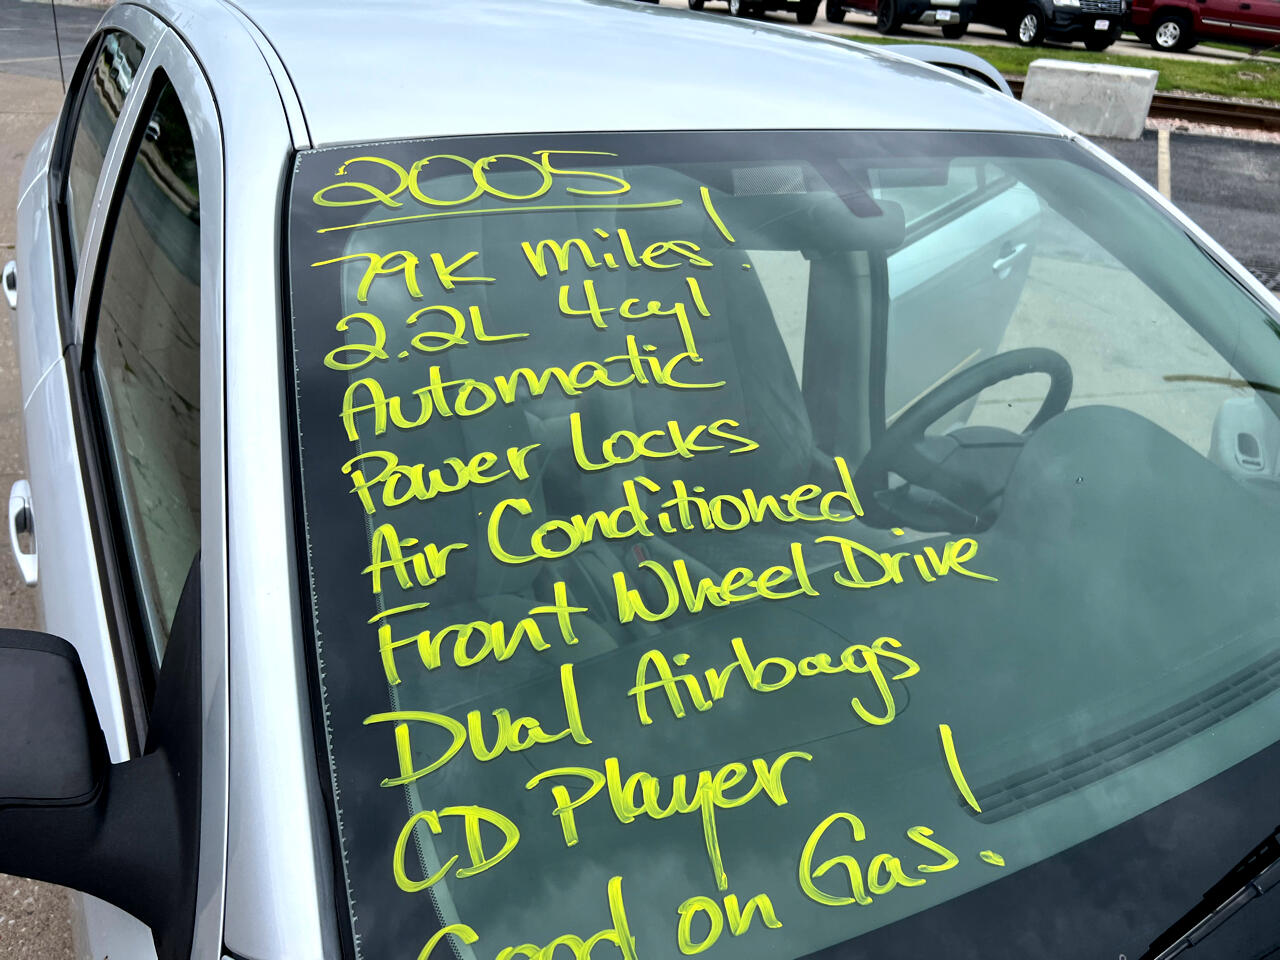 2005
79K miles!
2.2L 4cyl
Automatic
Power Locks
Air Conditioned
Front Wheel Drive
Dual Airbags
CD Player
Good on Gas!